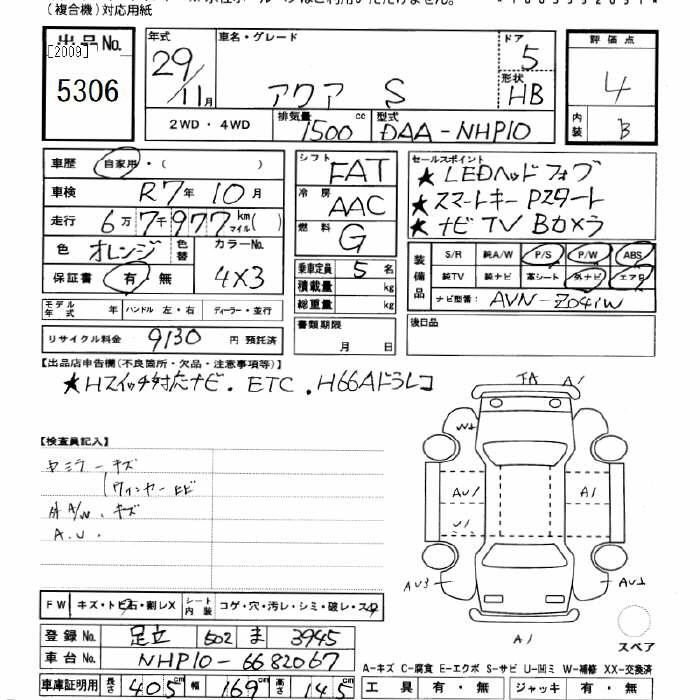 (複合機)対応用紙
出品No.
[2009]
5306
年式
29/11月
車名・グレード
アクア S
ドア
5
形状
HB
評価点
4
内装
B
2WD・4WD
排気量
1500 cc
型式
DAA-NHP10
車歴
自家用・( )
車検
R7年10月
走行
6万7千977 km マイル( )
色
オレンジ
色替
カラーNo.
4X3
保証書
有・無
モデル年式 年
ハンドル 左・右
ディーラー・並行
リサイクル料金 9130 円 預託済
シフト
FAT
冷房
AAC
燃料
G
乗車定員 5 名
積載量 kg
総重量 kg
書類期限
月 日
セールスポイント
★LEDヘッド フォグ
★スマートキー Pスタート
★ナビ TV Bカメラ
装備品
S/R 純A/W P/S P/W ABS
純TV 純ナビ 革シート 外ナビ エアB
ナビ型番: AVN-Z04iW
後日品
【出品店申告欄(不良箇所・欠品・注意事項等)】
★Hスイッチ対応ナビ. ETC. H66Aドラレコ
【検査員記入】
ミラーキズ
ウィンカーヒビ
外A/W. キズ
A.U.
FA A1
W+
AU1 A1
U1
AU3
A1
スペア
FW キズ・トビ石・割レX
シート内装 コゲ・穴・汚レ・シミ・破レ・スレ
登録No. 足立 502 ま 3945
車台No. NHP10-6682067
車庫証明用 長さ 405 cm 幅 169 cm 高さ 145 cm
A-キズ C-腐食 E-エクボ S-サビ U-凹ミ W-補修 XX-交換済
工具 有・無 ジャッキ 有・無